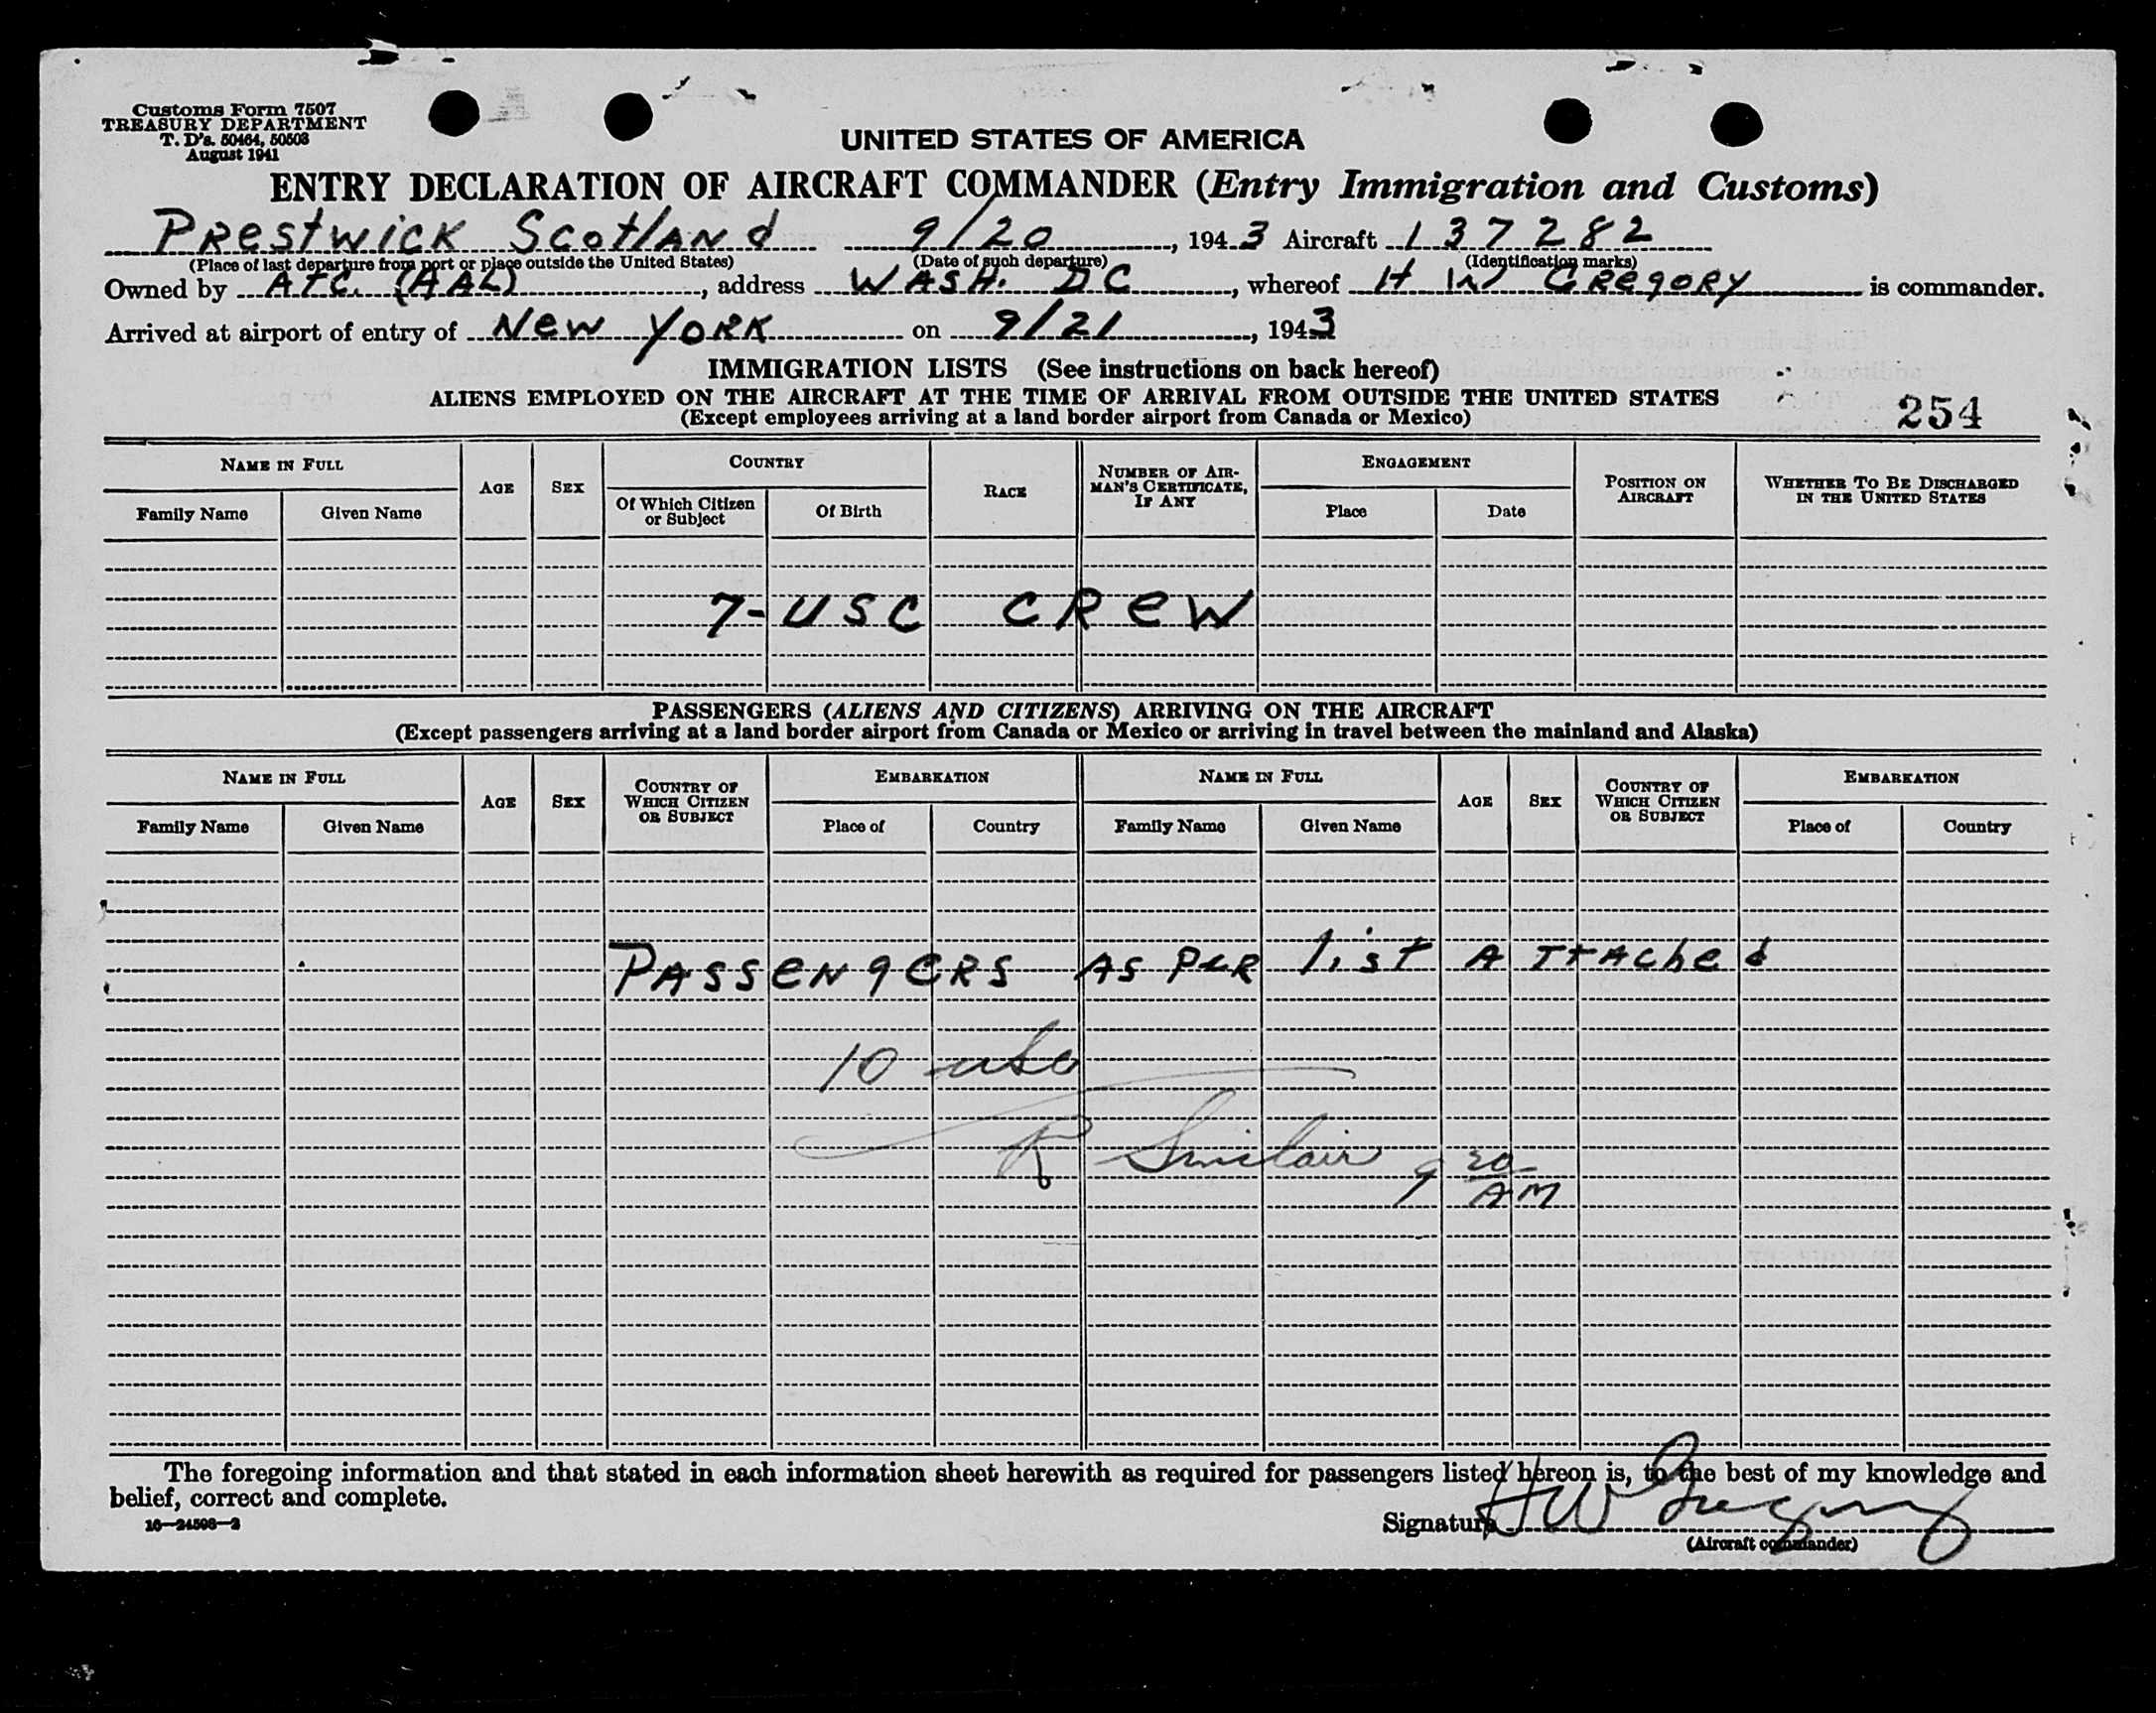 Customs Form 7507
TREASURY DEPARTMENT
T. D's. 50464, 50503
August 1941
UNITED STATES OF AMERICA
ENTRY DECLARATION OF AIRCRAFT COMMANDER (Entry Immigration and Customs)
Prestwick Scotland 9/20, 1943 Aircraft 137282
(Place of last departure from port or place outside the United States) (Date of such departure) (Identification marks)
Owned by ATC. (AAL), address WASH. DC, whereof H W GREGORY is commander.
Arrived at airport of entry of New YORK on 9/21, 1943
IMMIGRATION LISTS (See instructions on back hereof)
ALIENS EMPLOYED ON THE AIRCRAFT AT THE TIME OF ARRIVAL FROM OUTSIDE THE UNITED STATES
(Except employees arriving at a land border airport from Canada or Mexico)
254
NAME IN FULL AGE SEX COUNTRY RACE NUMBER OF AIRMAN'S CERTIFICATE, IF ANY ENGAGEMENT POSITION ON AIRCRAFT WHETHER TO BE DISCHARGED IN THE UNITED STATES
Family Name Given Name Of Which Citizen or Subject Of Birth Place Date
7-USC CREW
PASSENGERS (ALIENS AND CITIZENS) ARRIVING ON THE AIRCRAFT
(Except passengers arriving at a land border airport from Canada or Mexico or arriving in travel between the mainland and Alaska)
NAME IN FULL AGE SEX COUNTRY OF WHICH CITIZEN OR SUBJECT EMBARKATION NAME IN FULL AGE SEX COUNTRY OF WHICH CITIZEN OR SUBJECT EMBARKATION
Family Name Given Name Place of Country Family Name Given Name Place of Country
PASSENGERS AS PER list ATTACHed
10 usc
R Sinclair 9 20 AM
The foregoing information and that stated in each information sheet herewith as required for passengers listed hereon is, to the best of my knowledge and
belief, correct and complete.
16—24598—2
Signature HW Gregory
(Aircraft commander)